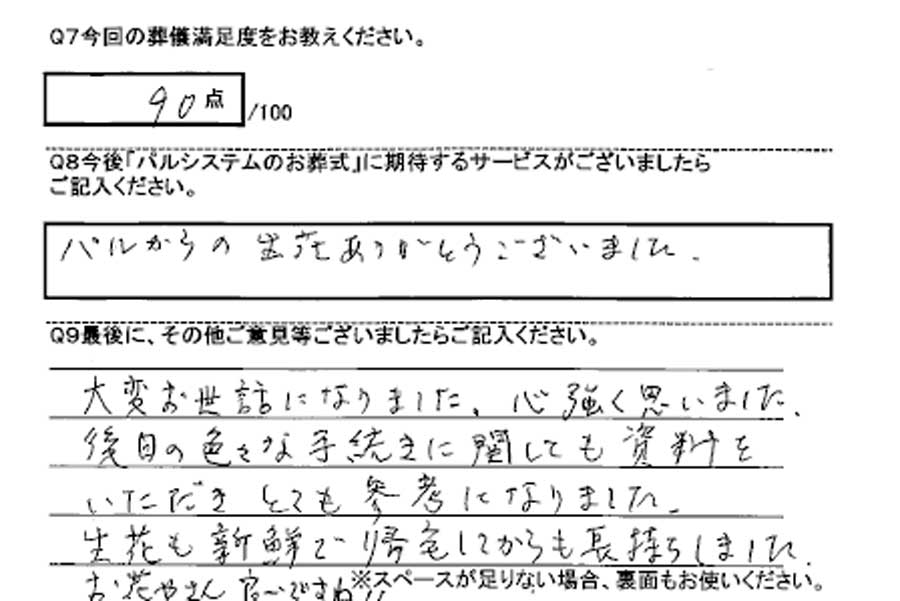 Q7今回の葬儀満足度をお教えください。
90点/100
Q8今後「パルシステムのお葬式」に期待するサービスがございましたら
ご記入ください。
パルからの生花ありがとうございました.
Q9最後に、その他ご意見等ございましたらご記入ください。
大変お世話になりました、心強く思いました、
後日の色々な手続きに関しても資料を
いただき とても参考になりました.
生花も新鮮で帰宅してからも長持ちしました
お花やさん 良いですね!!
※スペースが足りない場合、裏面もお使いください。